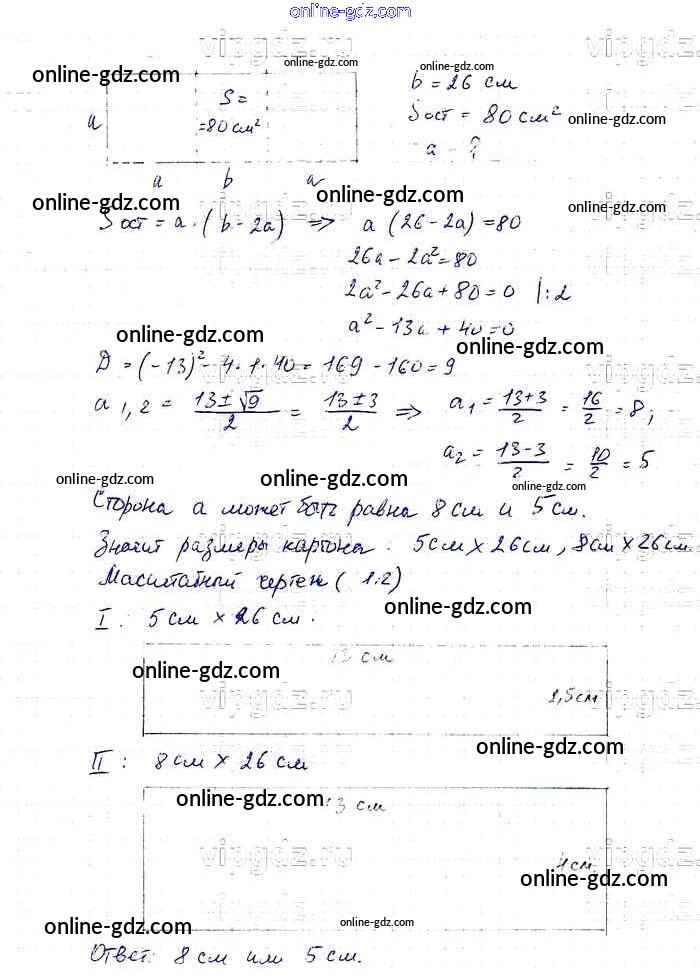 online-gdz.com
vipgdz.ru
vipgdz.ru
online-gdz.com
online-gdz.com
S =
=80 см²
a
b = 26 см
Sост = 80 см²
online-gdz.com
a - ?
a b a
online-gdz.com
online-gdz.com
online-gdz.com
Sост = a · (b - 2a) => a (26 - 2a) = 80
26a - 2a² = 80
2a² - 26a + 80 = 0 |:2
a² - 13a + 40 = 0
online-gdz.com
online-gdz.com
D = (-13)² - 4 · 1 · 40 = 169 - 160 = 9
a 1,2 = 13 ± √9 / 2 = 13 ± 3 / 2 => a1 = 13+3 / 2 = 16 / 2 = 8;
a2 = 13-3 / 2 = 10 / 2 = 5
online-gdz.com
online-gdz.com
online-gdz.com
Сторона a может быть равна 8 см и 5 см.
Значит размеры картона: 5 см × 26 см, 8 см × 26 см
Масштабный чертеж (1:2)
online-gdz.com
I: 5 см × 26 см.
13 см
online-gdz.com
vipgdz.ru
vipgdz.ru
2,5 см
online-gdz.com
II: 8 см × 26 см
online-gdz.com
13 см
vipgdz.ru
vipgdz.ru
4 см
online-gdz.com
online-gdz.com
online-gdz.com
Ответ: 8 см или 5 см.